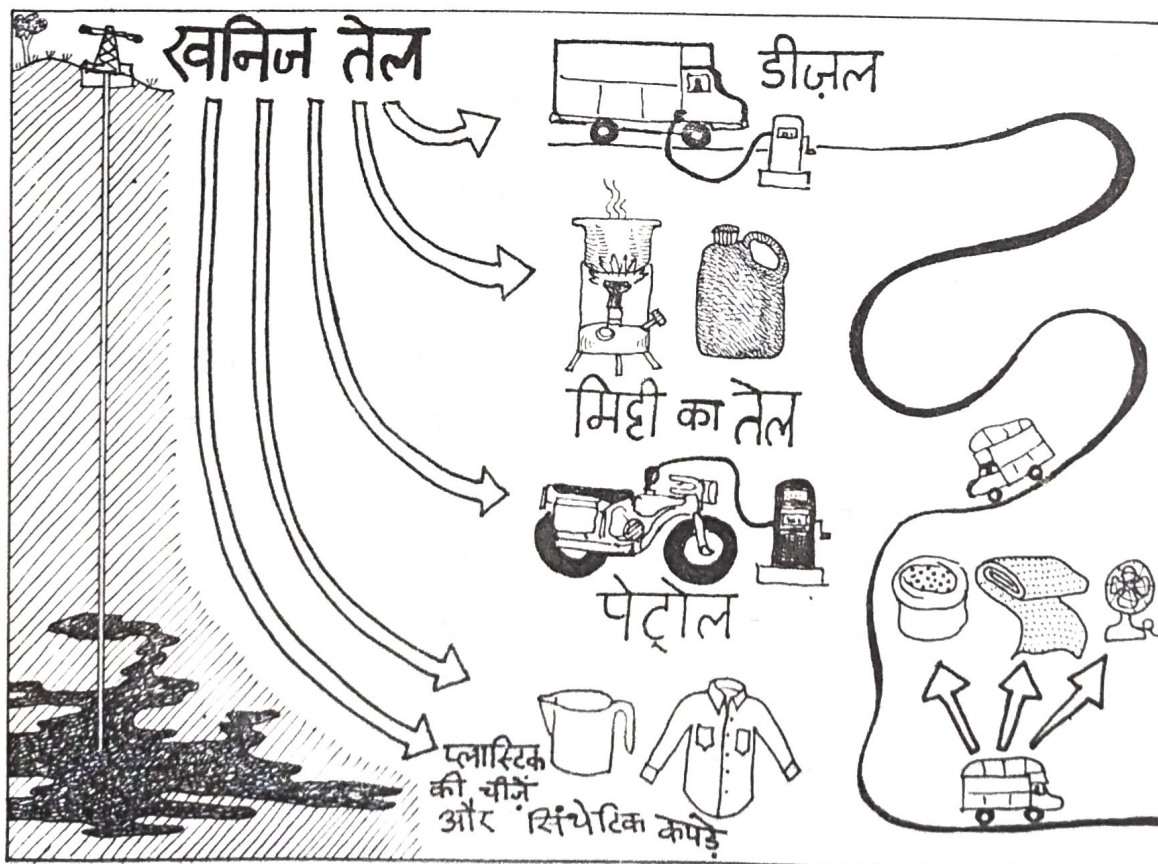 खनिज तेल
डीज़ल
मिट्टी का तेल
पेट्रोल
प्लास्टिक
की चीज़ें
और सिंथेटिक कपड़े